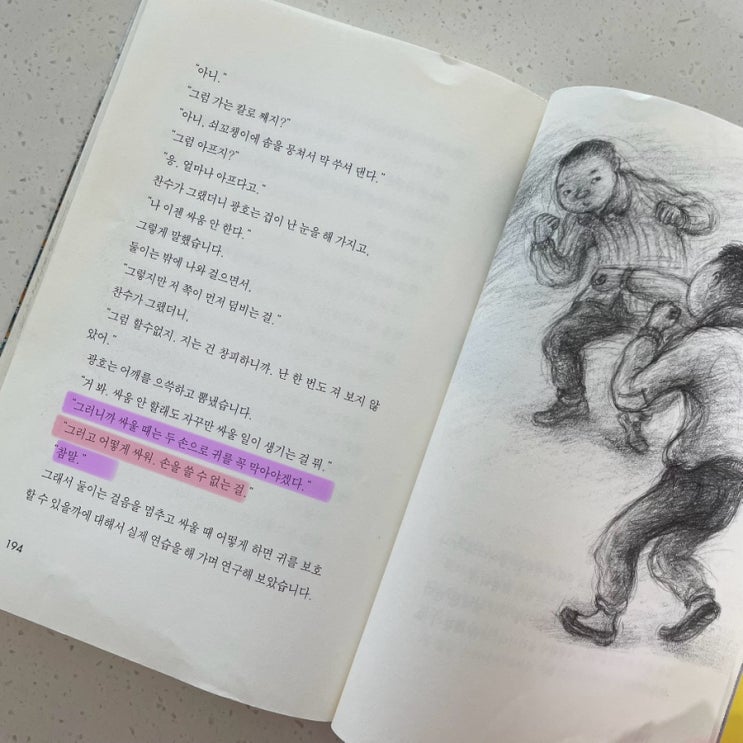 "아니."
"그럼 가는 칼로 째지?"
"아니, 쇠꼬챙이에 솜을 뭉쳐서 막 쑤서 댄다."
"그럼 아프지?"
"응. 얼마나 아프다고."
찬수가 그랬더니 광호는 겁이 난 눈을 해 가지고,
"나 이젠 싸움 안 한다."
그렇게 말했습니다.
둘이는 밖에 나와 걸으면서,
"그렇지만 저 쪽이 먼저 덤비는 걸."
찬수가 그랬더니,
"그럼 할수없지. 지는 건 창피하니까. 난 한 번도 져 보지 않
았어."
광호는 어깨를 으쓱하고 뽐냈습니다.
"거 봐. 싸움 안 할래도 자꾸만 싸울 일이 생기는 걸 뭐."
"그러니까 싸울 때는 두 손으로 귀를 꼭 막아야겠다."
"그러고 어떻게 싸워. 손을 쓸 수 없는 걸."
"참말."
그래서 둘이는 걸음을 멈추고 싸울 때 어떻게 하면 귀를 보호
할 수 있을까에 대해서 실제 연습을 해 가며 연구해 보았습니다.
194